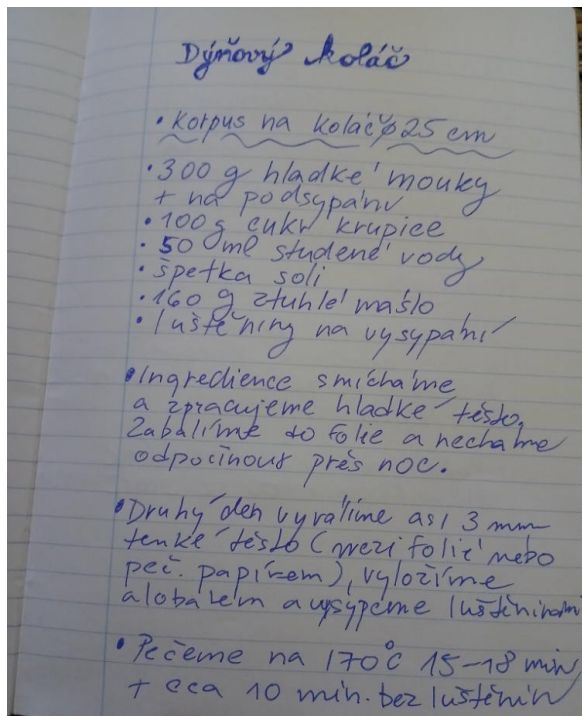 Dýňový koláč
• Korpus na koláč ø 25 cm
• 300 g hladké mouky
+ na podsypání
• 100 g cukr krupice
• 50 ml studené vody
• špetka soli
• 160 g ztuhlé máslo
• luštěniny na vysypání
• Ingredience smícháme
a zpracujeme hladké těsto.
Zabalíme do folie a necháme
odpočinout přes noc.
• Druhý den vyválíme asi 3 mm
tenké těsto (mezi folií nebo
peč. papírem), vyložíme
alobalem a vysypeme luštěninami
• Pečeme na 170°C 15-18 min
+ cca 10 min. bez luštěnin